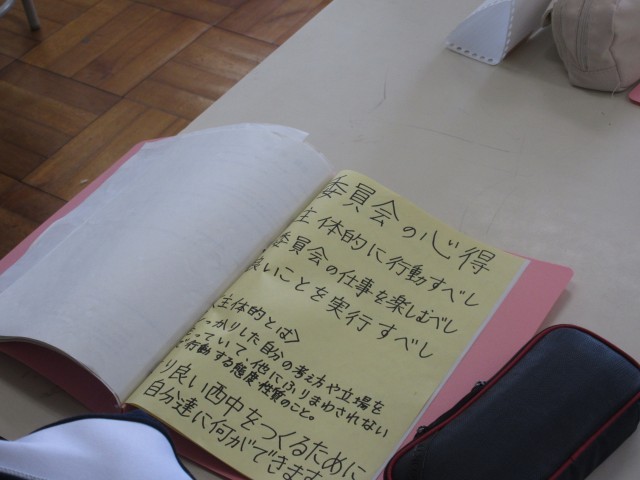 委員会の心得
主体的に行動すべし
委員会の仕事を楽しむべし
良いことを実行すべし
<主体的とは>
っかりした自分の考え方や立場を
っていて、他にふりまわされない
行動する態度・性質のこと。
り良い西中をつくるために
自分達に何ができます